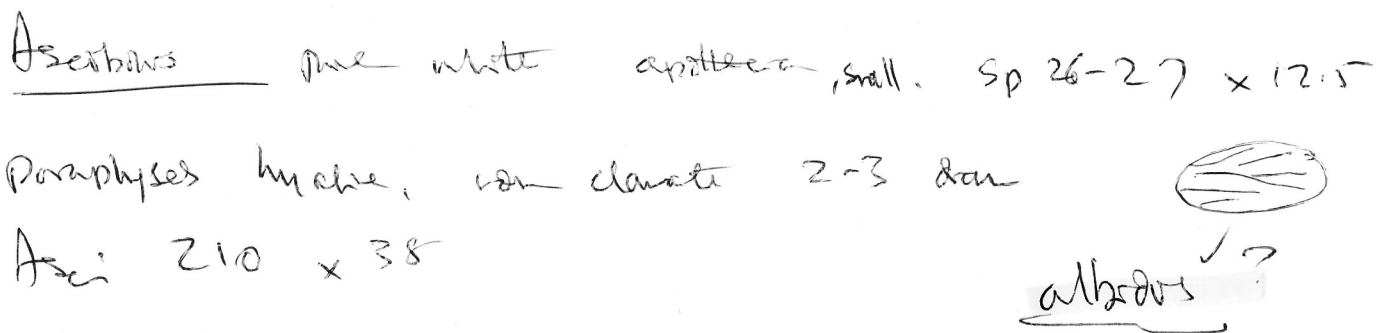 Ascobolus pure white apothecia, small. Sp 26-27 x 12.5
Paraphyses hyaline, non clavate 2-3 diam
Asci 210 x 38
albidus ✓ ?